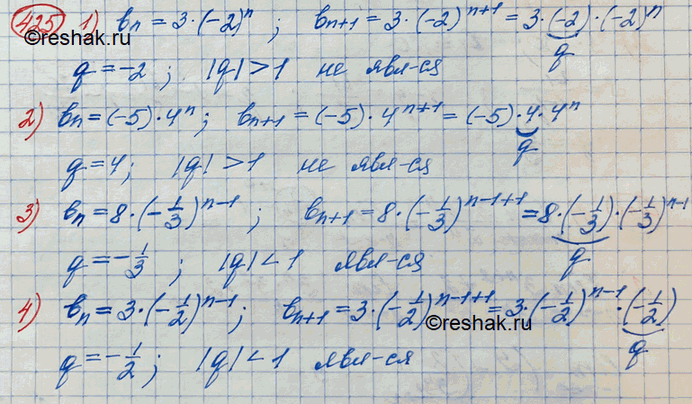 425 1) bₙ = 3·(-2)ⁿ ; bₙ₊₁ = 3·(-2)ⁿ⁺¹ = 3·(-2)·(-2)ⁿ
©reshak.ru
q
q = -2 ; |q| > 1 не явл-ся
2) bₙ = (-5)·4ⁿ ; bₙ₊₁ = (-5)·4ⁿ⁺¹ = (-5)·4·4ⁿ
q
q = 4 ; |q| > 1 не явл-ся
3) bₙ = 8·(-1/3)ⁿ⁻¹ ; bₙ₊₁ = 8·(-1/3)ⁿ⁻¹⁺¹ = 8·(-1/3)·(-1/3)ⁿ⁻¹
q
q = -1/3 ; |q| < 1 явл-ся
4) bₙ = 3·(-1/2)ⁿ⁻¹ ; bₙ₊₁ = 3·(-1/2)ⁿ⁻¹⁺¹ = 3·(-1/2)ⁿ⁻¹·(-1/2)
©reshak.ru
q
q = -1/2 ; |q| < 1 явл-ся